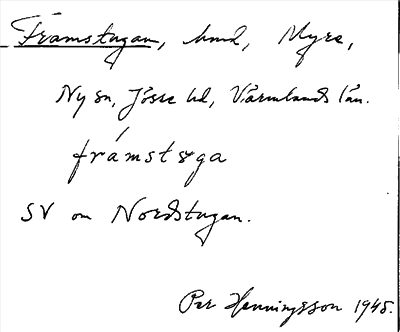 Framstugan, hmd, Myre,
Ny sn, Jösse hd, Värmlands län.
framstɞga
SV om Nordstugan.
Per Henningsson 1945.